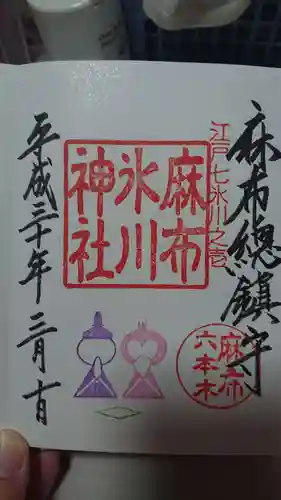 麻布總鎮守
江戸七氷川之壱
麻布
氷川
神社
麻布
六本木
平成三十年三月十日